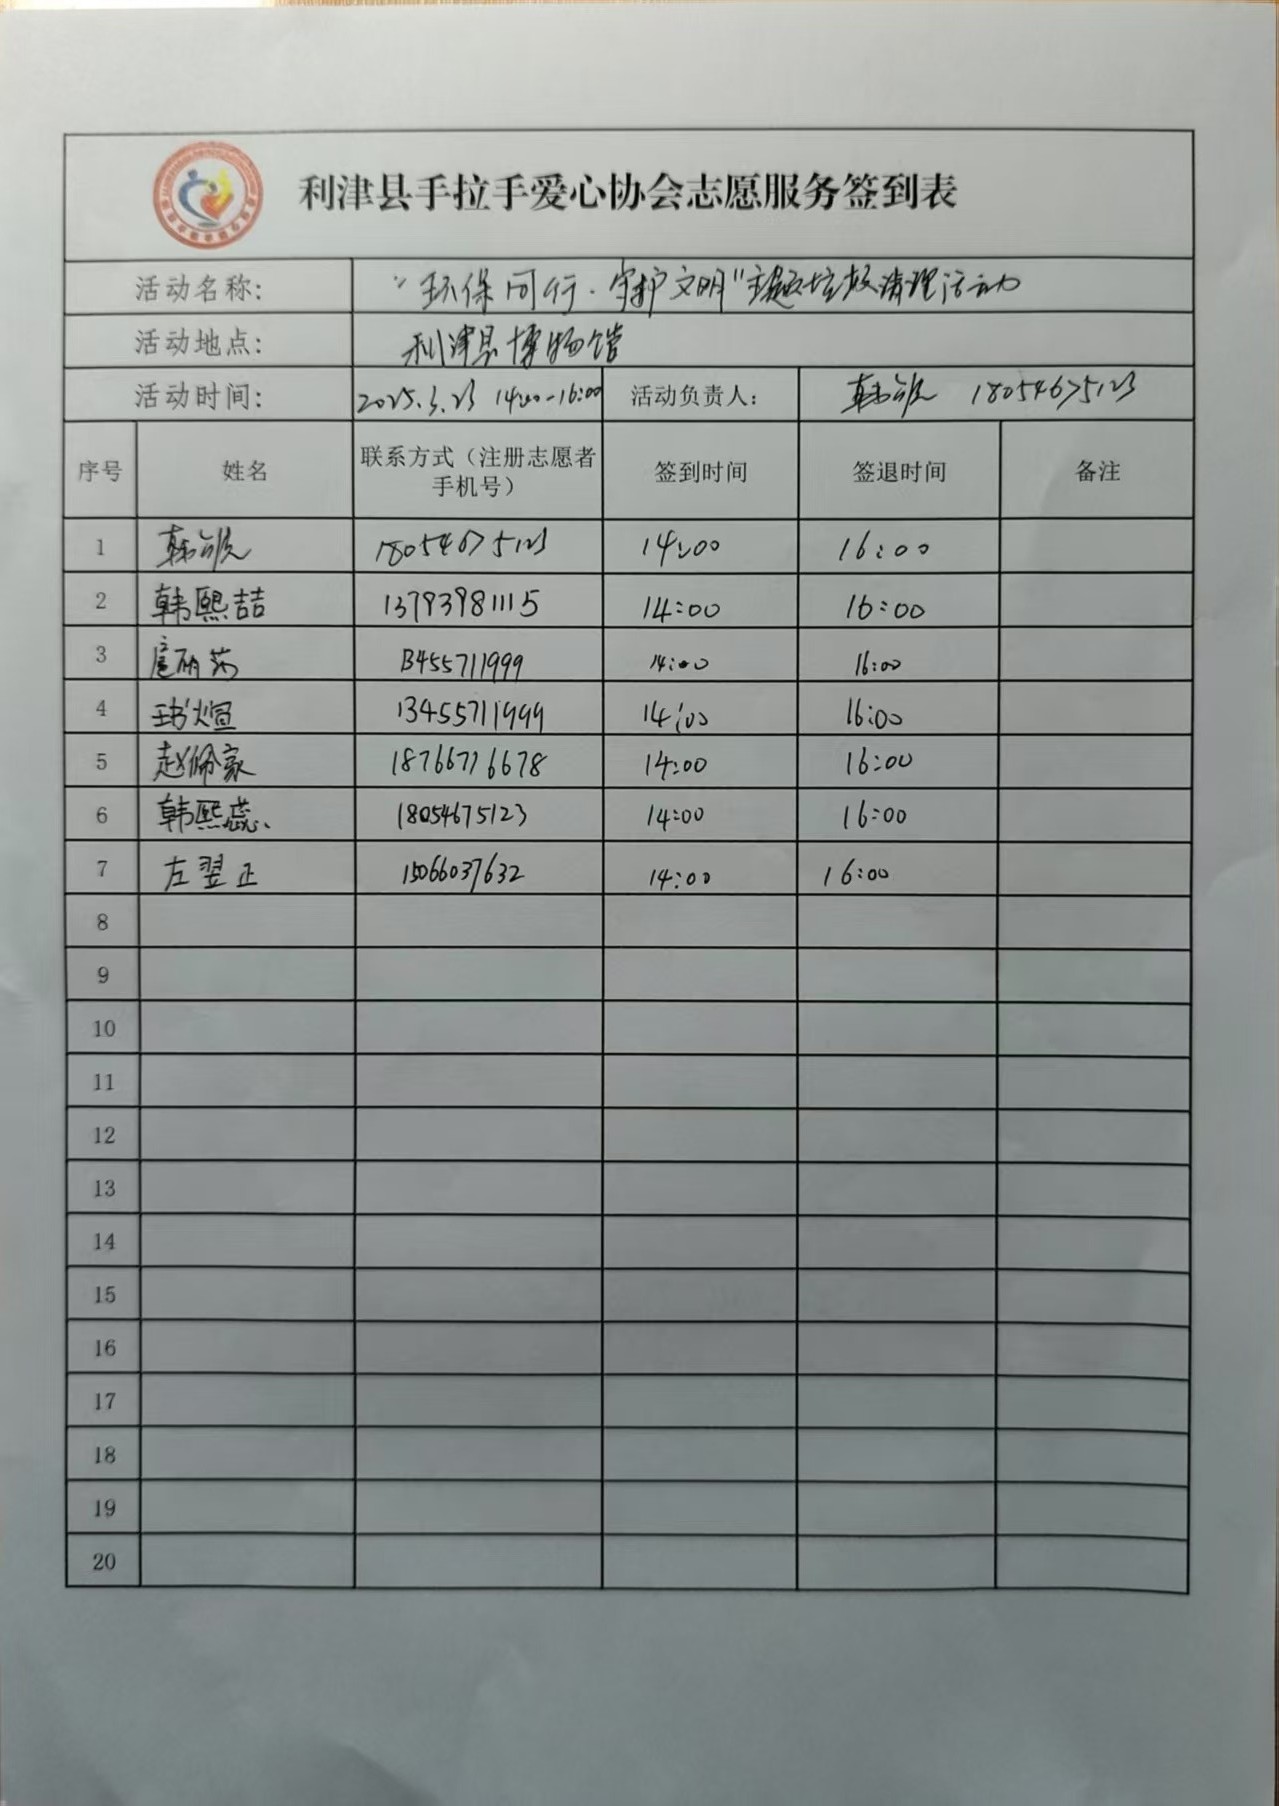 利津县手拉手爱心协会志愿服务签到表
活动名称: "环保同行·守护文明"主题垃圾清理活动
活动地点: 利津县博物馆
活动时间: 2025.3.23 14:00-16:00 活动负责人: 韩 18054675123
序号 姓名 联系方式（注册志愿者手机号） 签到时间 签退时间 备注
1 韩 18054675123 14:00 16:00
2 韩熙喆 13793981115 14:00 16:00
3 13455711999 14:00 16:00
4 13455711999 14:00 16:00
5 赵佩家 18766716678 14:00 16:00
6 韩熙蕊 18054675123 14:00 16:00
7 左翌正 15066037632 14:00 16:00
8
9
10
11
12
13
14
15
16
17
18
19
20